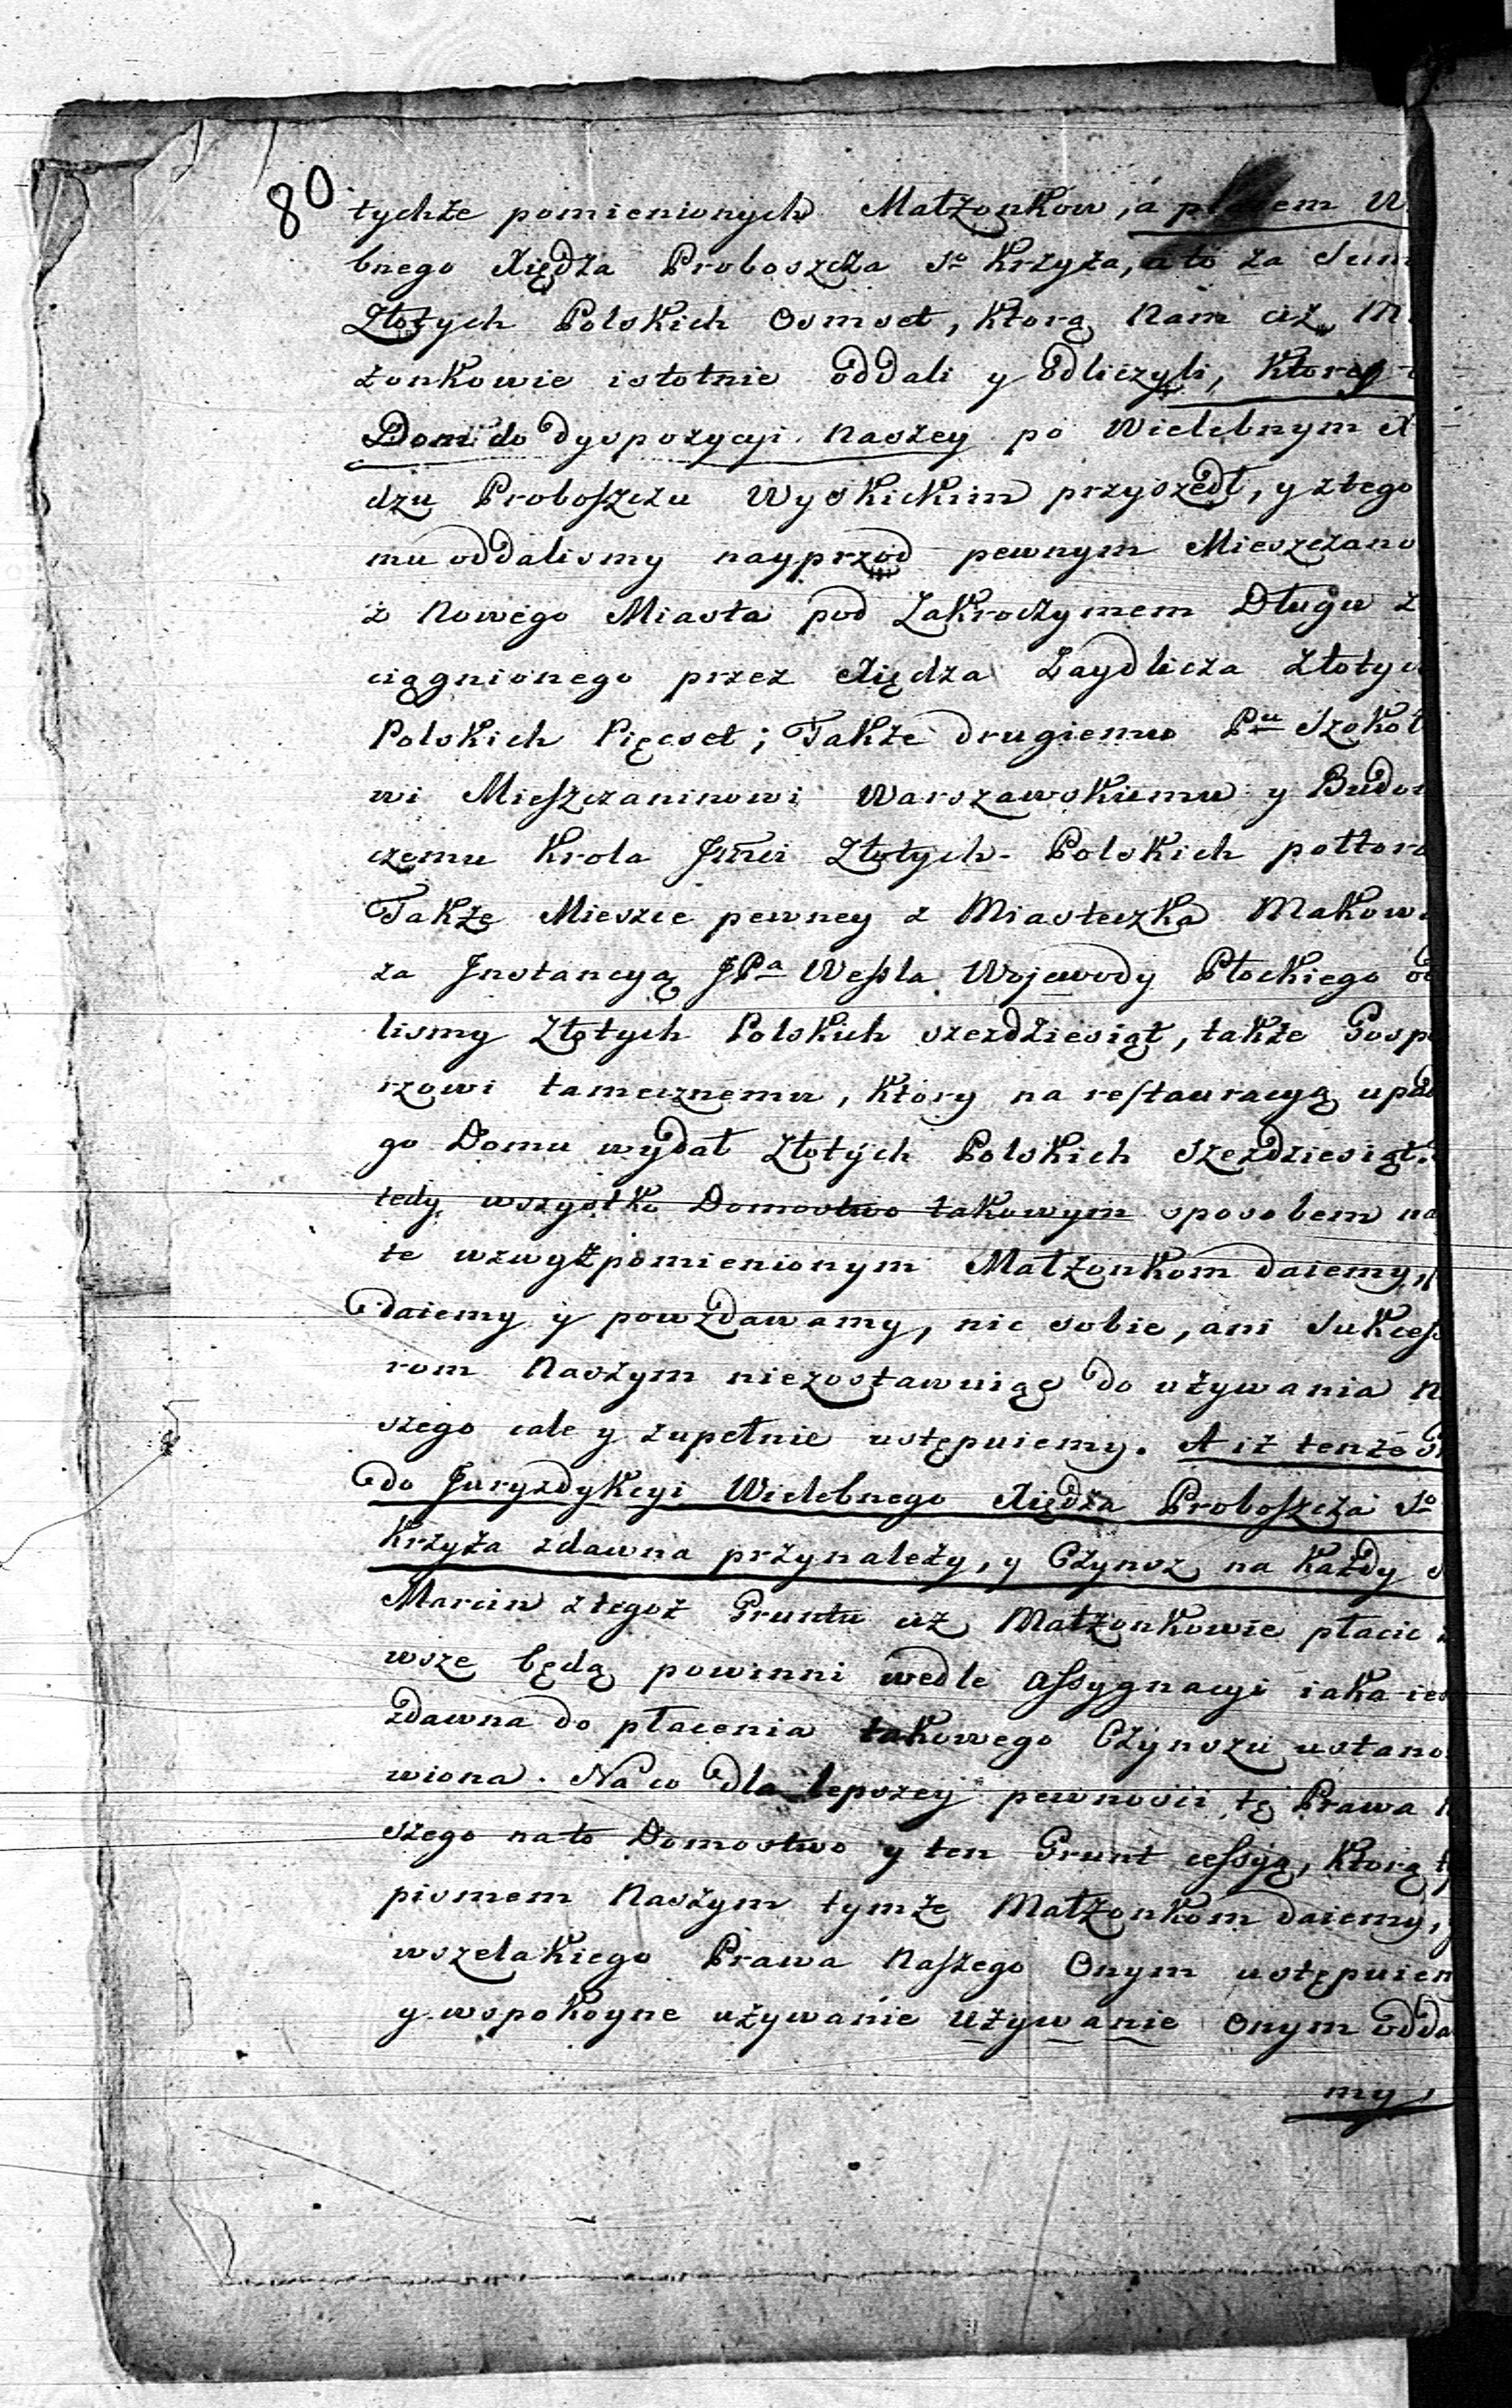 80
tychże pomienionych Małżonkow, a W
bnego Xiędza Proboszcza So Krzyża, a to za Sum
Złotych Polskich Osmset, ktorą Nam ciż M
żonkowie istotnie oddali y odliczyli, ktorey
Dom do dyspozycyi naszey po Wielebnym X
dzu Proboszczu Wyskickim przyszedł, y z tego
mu oddalismy nayprzod pewnym Mieszczano
z Nowego Miasta pod Zakroczymem Długu z
ciągnionego przez Xiędza Zaydlicza Złotyc
Polskich Pięcset; Także drugiemu Pu Szokoł
wi Mieszczaninowi Warszawskiemu y Budow
czemu Krola Jmci Złotych Polskich połtora
Także Mieszce pewney z Miasteczka Makow
za Jnstancyą JPa Wessla Wojewody Płockiego od
lismy Złotych Polskich szezdziesiąt, także Gosp
rzowi tamecznemu, ktory na restauracyą upad
go Domu wydał Złotych Polskich Szezdziesiąt.
tedy wszystko Domostwo takowym sposobem na
te wzwyżpomienionym Małżonkom daiemy,
daiemy y powzdawamy, nic sobie, ani Sukcess
rom Naszym niezostawuiąc do używania N
szego cale y zupełnie ustępuiemy. A iż tenże G
do Juryzdykcyi Wielebnego Xiędza Proboszcza So
Krzyża zdawna przynależy, y Czynsz na każdy S
Marcin z tegoż Gruntu ciż Małżonkowie płacic
wsze będą powinni wedle Assygnacyi iaka ies
zdawna do płacenia takowego Czynszu ustano
wiona. Na co dla lepszey pewnosci tę Prawa
szego na to Domostwo y ten Grunt cessyą, ktorą
pismem Naszym tymże Małżonkom daiemy, y
wszelakiego Prawa Naszego Onym ustępuiem
y wspokoyne używanie używanie onym odda
my,